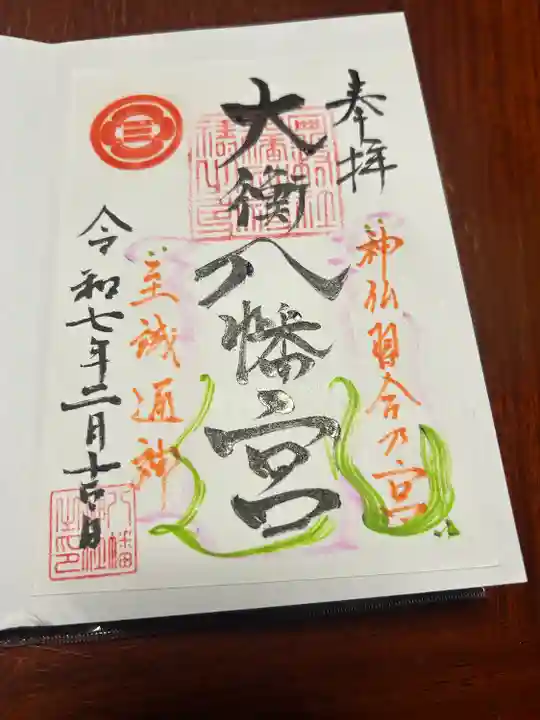 奉拝
神仏習合乃宮
大衡八幡宮
至誠通神
令和七年二月十六日